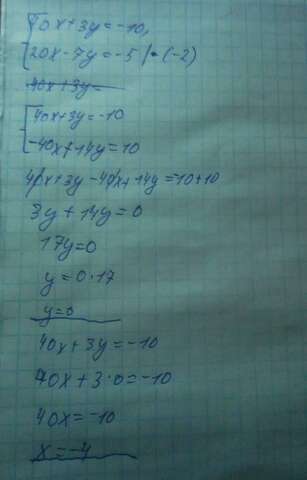 40x+3y=-10,
20x-7y=-5 | • (-2)
40x+3y=
40x+3y=-10
-40x+14y=10
40x+3y-40x+14y=-10+10
3y+14y=0
17y=0
y=0·17
y=0
40x+3y=-10
40x+3·0=-10
40x=-10
x=-4